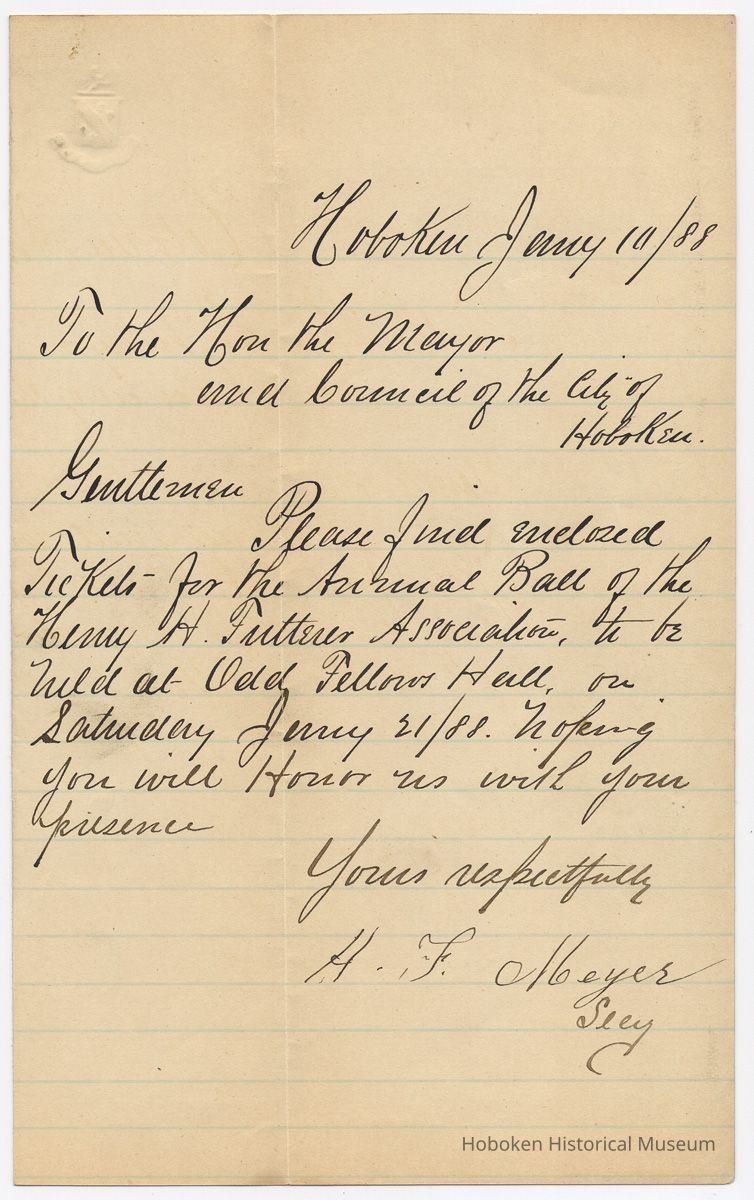 Hoboken Jany 10/88
To the Hon the Mayor
and Council of the City of
Hoboken.
Gentlemen
Please find enclosed
Tickets for the Annual Ball of the
Henry H. Futterer Association, to be
held at Odd Fellows Hall, on
Saturday Jany 21/88. hoping
you will Honor us with your
presence
Yours respectfully
H. F. Meyer
Secy
Hoboken Historical Museum